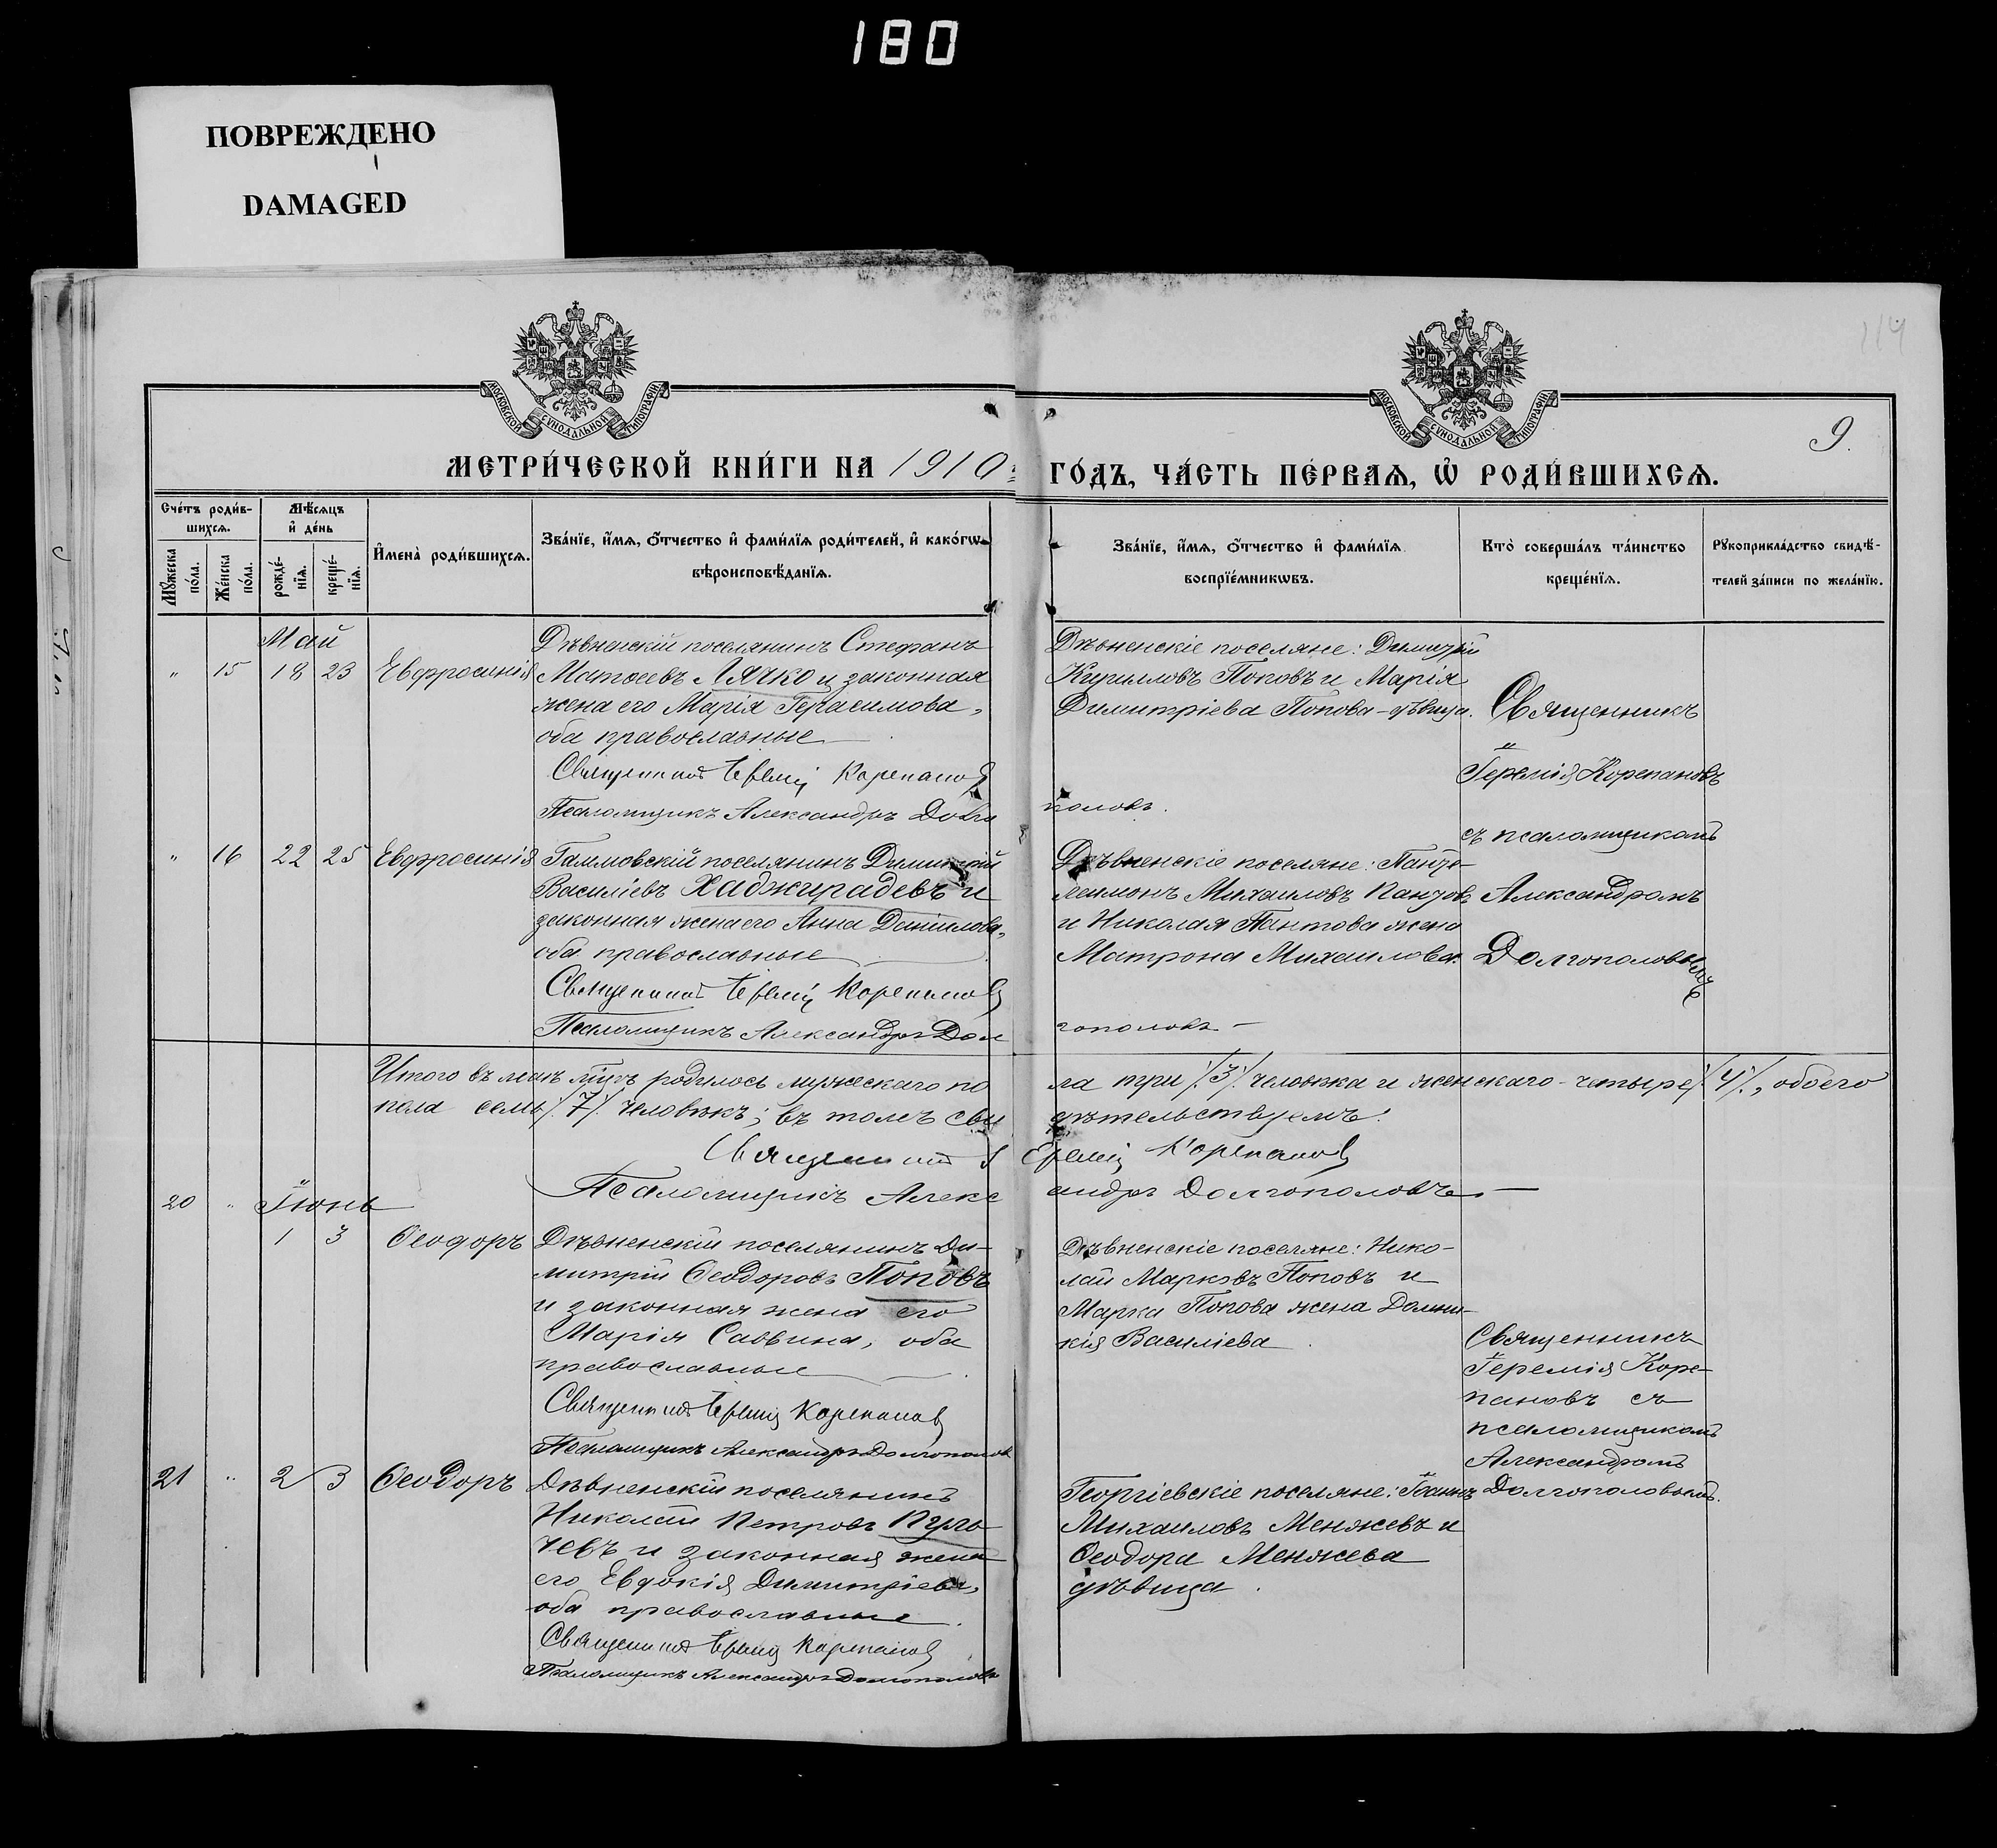 180
ПОВРЕЖДЕНО
DAMAGED
114
МОСКОВСКОЙ СѴНОДАЛЬНОЙ ТИПОГРАФІИ
МОСКОВСКОЙ СѴНОДАЛЬНОЙ ТИПОГРАФІИ
9.
МЕТРИ́ЧЕСКОЙ КНИ́ГИ НА 1910
ГО́ДЪ, ЧА́СТЬ ПЕ́РВАѦ, Ѡ҆ РОДИ́ВШИХСѦ.
Сче́тъ роди́в-
шихсѧ.
Мꙋжеска по́ла.
Же́нска по́ла.
Мѣ́сѧцъ
и҆ де́нь
рожде́-
нїѧ.
креще́-
нїѧ.
И҆мена̀ роди́вшихсѧ.
Зва́нїе, и҆́мѧ, ѻ҆́тчество и҆ фами́лїѧ роди́телей, и҆ како́гѡ
вѣроисповѣ́данїѧ.
Зва́нїе, и҆́мѧ, ѻ҆́тчество и҆ фами́лїѧ
воспрїе́мникѡвъ.
Кто̀ соверша́лъ та́инство
креще́нїѧ.
Рꙋкоприкла́дство свидѣ́-
телей за́писи по жела́нїю.
Май
" 15 18 23 Евфросинія
Дѣвненскій поселянинъ Стефанъ
Матѳеевъ Лячко и законная
жена его Марія Герасимова,
оба православные
Священникъ Іеремія Корепановъ
Псаломщикъ Александръ Долго
половъ.
Дѣвненскіе поселяне: Димитрій
Кирилловъ Поповъ и Марія
Димитріева Попова - дѣвица.
Священникъ
Іеремія Корепановъ
съ псаломщикомъ
Александромъ
Долгополовымъ
" 16 22 25 Евфросинія
Гаммовскій поселянинъ Димитрій
Василіевъ Хаджирадевъ и
законная жена его Анна Даніилова,
оба православные
Священникъ Іеремія Корепановъ
Псаломщикъ Александръ Дол
гополовъ
Дѣвненскіе поселяне: Панте-
леимонъ Михаиловъ Пантовъ
и Николая Пантова жена
Матрона Михаилова.
Итого въ маѣ мѣсяцѣ родилось мужескаго по
ла три /3/ человѣка и женскаго - четыре /4/, обоего
пола семь /7/ человѣкъ; въ томъ сви
дѣтельствуемъ:
Священникъ Іеремія Корепановъ
Псаломщикъ Алекс
андръ Долгополовъ
Іюнь
20 " 1 3 Ѳеодоръ
Дѣвненскій поселянинъ Ди-
митрій Ѳеодоровъ Поповъ
и законная жена его
Марія Саввина, оба
православные
Священникъ Іеремія Корепановъ
Псаломщикъ Александръ Долгополовъ
Дѣвненскіе поселяне: Нико-
лай Марковъ Поповъ и
Марка Попова жена Домни-
кія Василіева
Священникъ
Іеремія Коре-
пановъ съ
псаломщикомъ
Александромъ
Долгополовымъ.
21 " 2 3 Ѳеодоръ
Дѣвненскій поселянинъ
Николай Петровъ Пуль
чевъ и законная жена
его Евдокія Димитріева,
оба православные
Священникъ Іеремія Корепановъ
Псаломщикъ Александръ Долгополовъ
Георгіевскіе поселяне: Іоаннъ
Михаиловъ Меняжевъ и
Ѳеодора Меняжева
дѣвица.